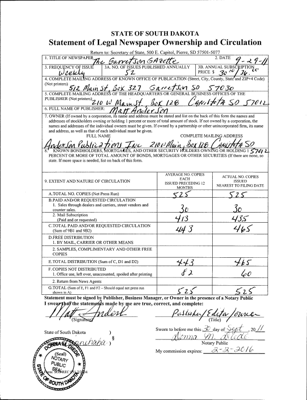 STATE OF SOUTH DAKOTA
Statement of Legal Newspaper Ownership and Circulation
Return to: Secretary of State, 500 E. Capitol, Pierre, SD 57501-5077
1. TITLE OF NEWSPAPER The Garretson Gazette
2. DATE 9-29-11
3. FREQUENCY OF ISSUE Weekly
3A. NO. OF ISSUES PUBLISHED ANNUALLY 52
3B. ANNUAL SUBSCRIPTION PRICE $
4. COMPLETE MAILING ADDRESS OF KNOWN OFFICE OF PUBLICATION (Street, City, County, State and ZIP+4 Code)
(Not printers) 512 Main St. Box 327 Garretson SD 57030
5. COMPLETE MAILING ADDRESS OF THE HEADQUARTERS OF GENERAL BUSINESS OFFICES OF THE
PUBLISHER (Not printer) 210 W Main St Box 128 Canistota SD 57012
6. FULL NAME OF PUBLISHER Matt Anderson
7. OWNER (If owned by a corporation, its name and address must be stated and
addresses of stockholders owning or holding 1 percent or more of total amount of stock. If not owned by a corporation, the
names and addresses of the individual owners must be given. If owned by a partnership or other unincorporated firm, its name
and address, as well as that of each individual must be given.)
FULL NAME COMPLETE MAILING ADDRESS
Anderson Publications Inc. 210 W Main, Box 128 Canistota SD
8. KNOWN BONDHOLDERS, MORTGAGEES, AND OTHER SECURITY HOLDERS OWNING OR HOLDING 1
PERCENT OR MORE OF TOTAL AMOUNT OF BONDS, MORTGAGES OR OTHER SECURITIES (If there are none, so
state. If more space is needed, list on back of this form.
9. EXTENT AND NATURE OF CIRCULATION
AVERAGE NO. COPIES EACH ISSUED PRECEDING 12 MONTHS
ACTUAL NO. COPIES ISSUED NEAREST TO FILING DATE
A. TOTAL NO. COPIES (Net Press Run) 525 525
B. PAID AND/OR REQUESTED CIRCULATION
1. Sales through dealers and carriers, street vendors and
counter sales. 30 30
2. Mail Subscription
(Paid and or requested) 413 435
C. TOTAL PAID AND/OR REQUESTED CIRCULATION
(Sum of 9B1 and 9B2) 443 465
D. FREE DISTRIBUTION
1. BY MAIL, CARRIER OR OTHER MEANS
2. SAMPLES, COMPLIMENTARY AND OTHER FREE
COPIES
E. TOTAL DISTRIBUTION (Sum of C, D1 and D2) 443 465
F. COPIES NOT DISTRIBUTED
1. Office use, left over, unaccounted, spoiled after printing 82 60
2. Return from News Agents
G. TOTAL (Sum of E, F1 and F2 - Should equal net press run
shown in A) 525 525
Statement must be signed by Publisher, Business Manager, or Owner in the presence of a Notary Public
I swear that the statements made by me are true, correct, and complete:
(Signature)
Publisher/Editor/owner
(Title)
State of South Dakota )
Sworn to before me this day of Sept 2011
Notary Public
My commission expires: 2-2-2016
NOTARY PUBLIC
SOUTH DAKOTA